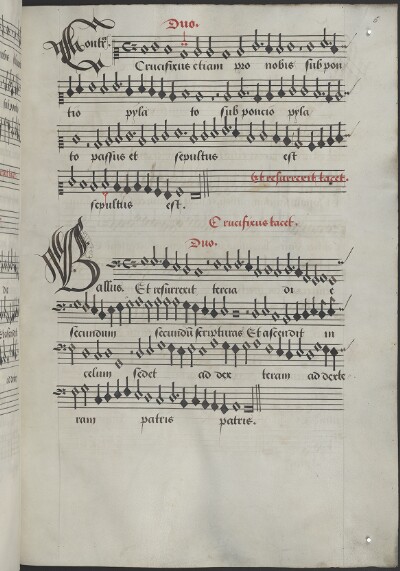 Duo.
Contr
Crucifixus etiam pro nobis sub pon
tio pyla to sub poncio pyla
to passus et sepultus est
Et resurrexit tacet.
sepultus est.
Crucifixus tacet.
Duo.
Bassus. Et resurrexit tercia di e
secundum secundū scripturas Et ascendit in
celum sedet ad dex teram ad dexte
ram patris patris.